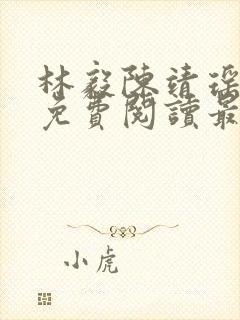 林毅陳靖瑤
免費閱讀最
小虎